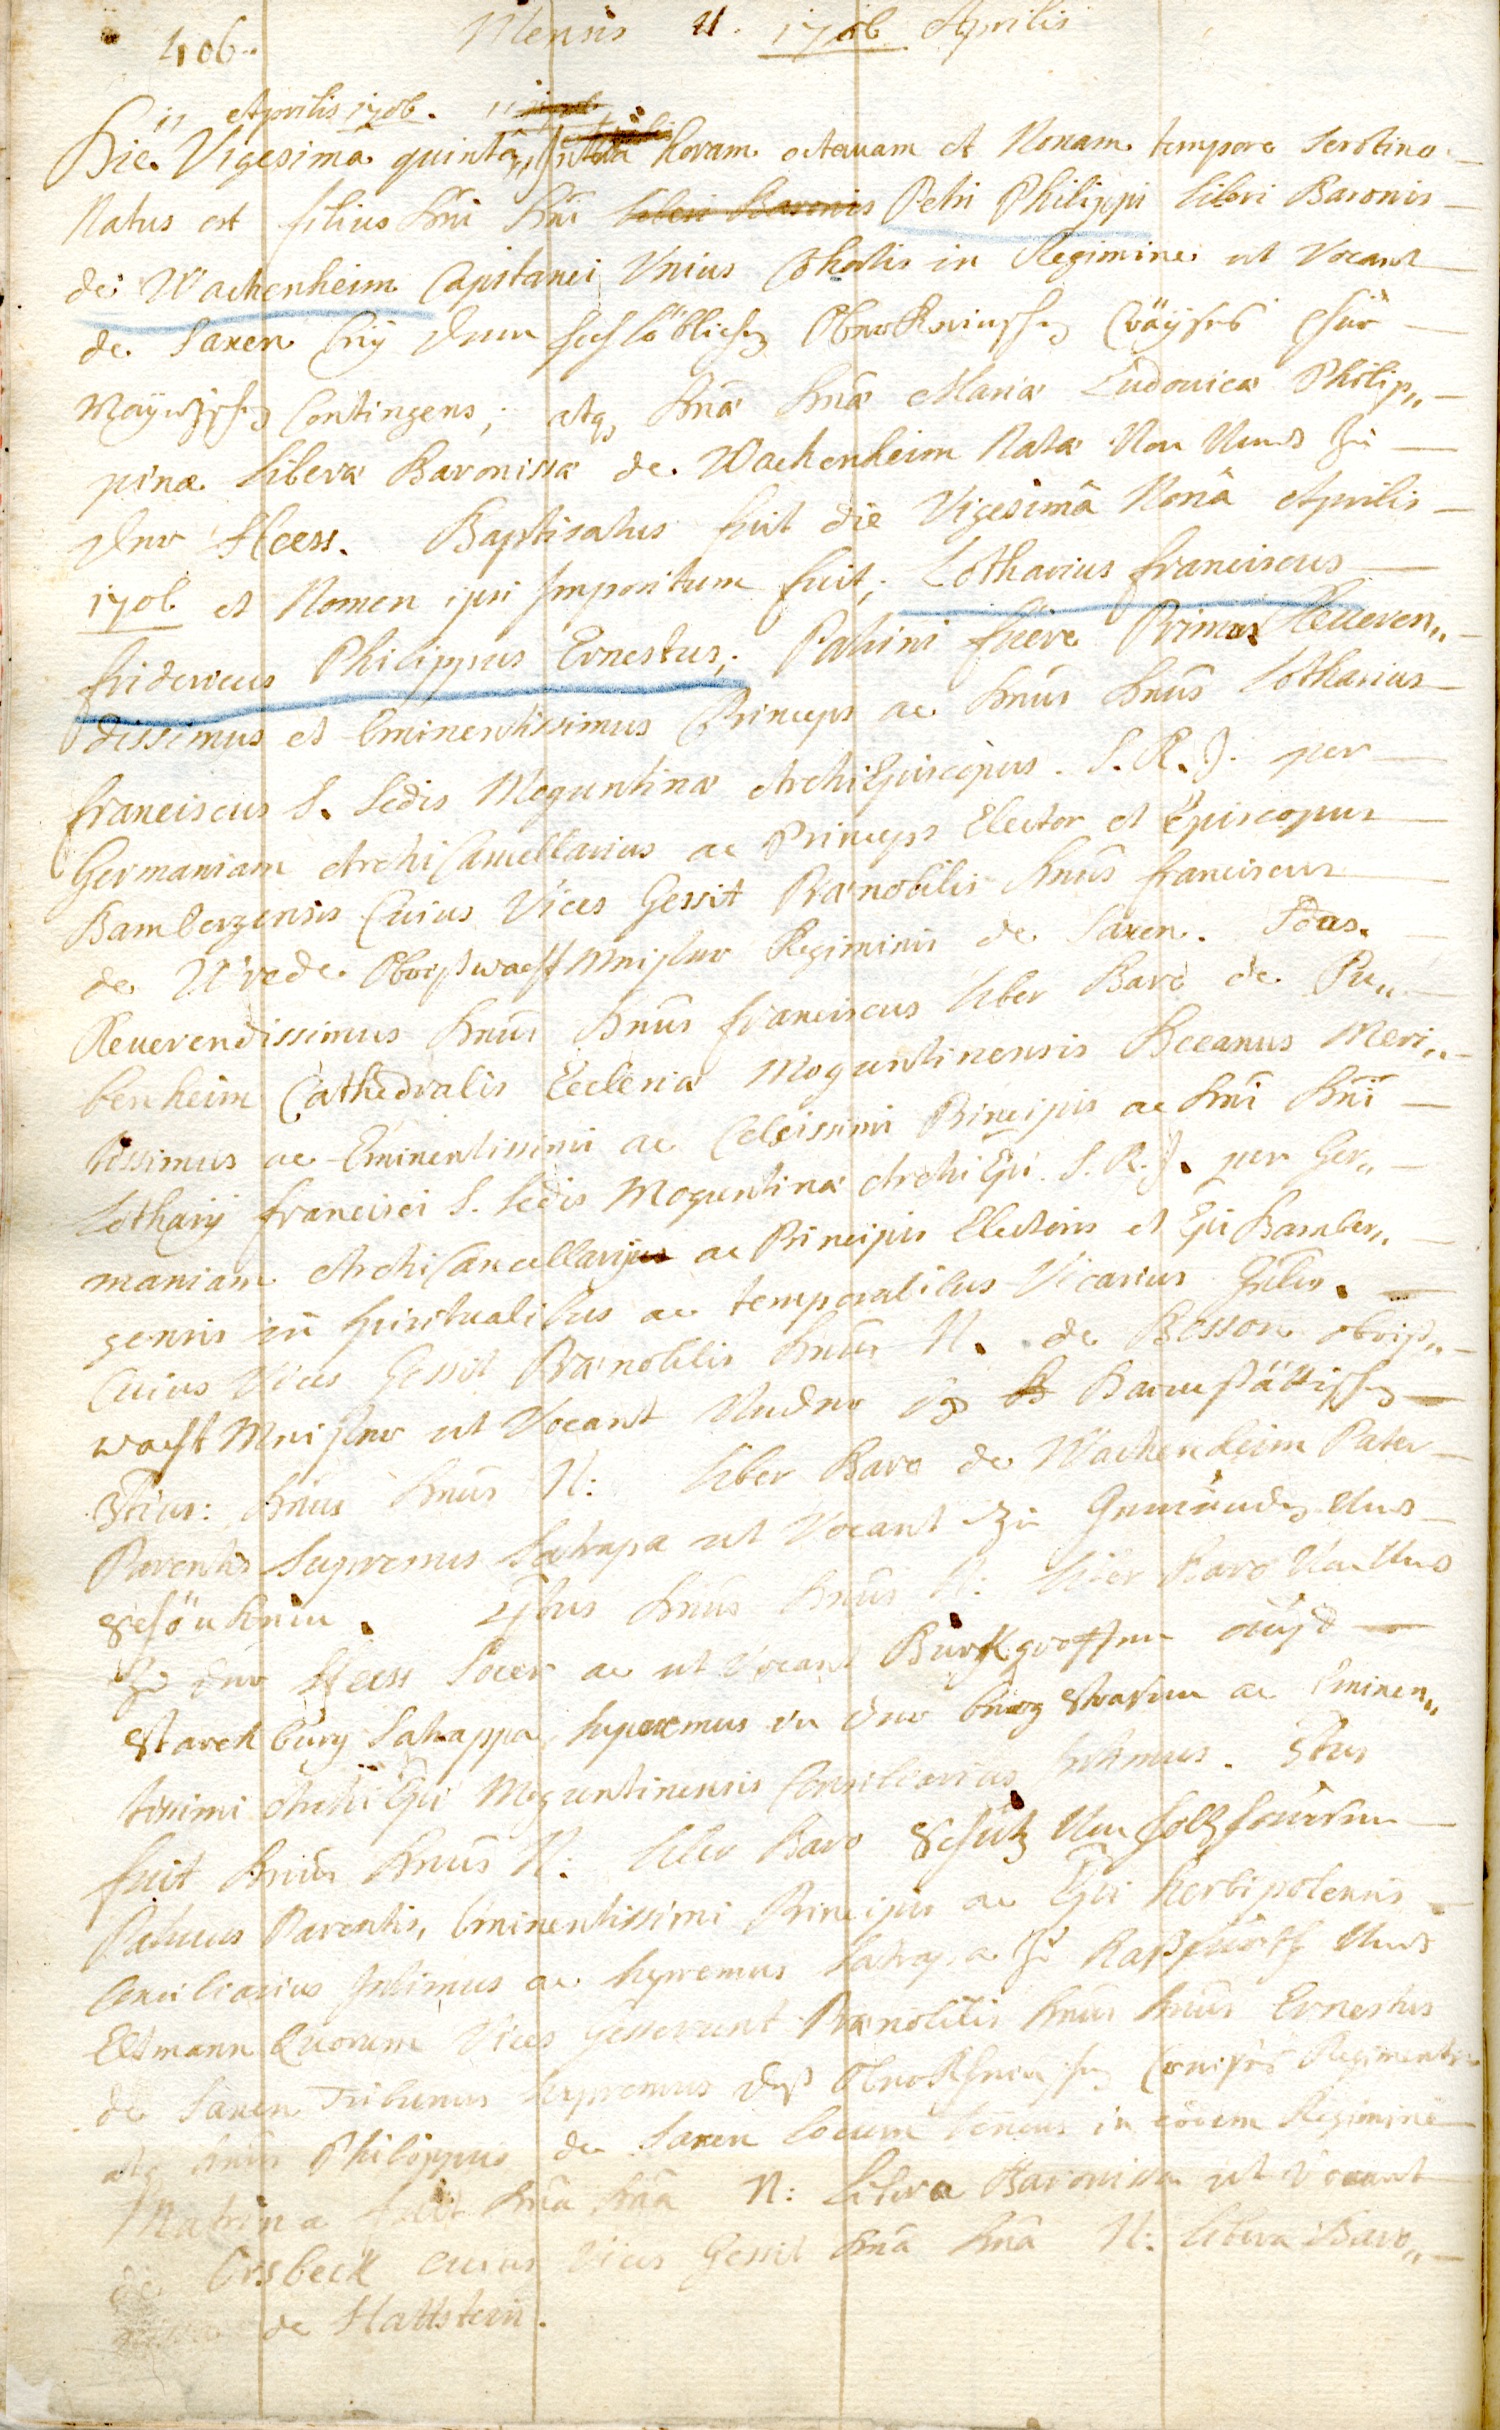 406. Mensis 4. 1706 Aprilis
11 Aprilis 1706.
Die Vigesima quintâ, Intra horam octavam et Nonam tempore Serotino
Natus est filius Dni Dni liberi Baronis Petri Philippi liberi Baronis
de Wachenheim Capitanei Unius Cohortis in Regimine ut Vocant
de Saxen beÿ dem hochlöblichen Ober Rheinischen Cräyses Chur
Mayntzischen Contingens, atq, Dnæ Dnæ Mariæ Ludovicæ Philip„
pinæ liberæ Baronissæ de Wachenheim Natæ Von Undt Zu
der Heess. Baptisatus fuit die Vigesimâ Nonâ Aprilis
1706 et Nomen ipsi Impositum fuit, Lotharius franciscus
fridericus Philippus Ernestus; Patrini fuere Primus Reveren„
dissimus et Eminentissimus Princeps ac Dnus Dnus Lotharius
franciscus S. Sedis Moguntinæ ArchiEpiscopus. S. R. J. per
Germaniam ArchiCancellarius ac Princeps Elector et Episcopus
Bambergensis Cuius Vices Gessit Prænobilis Dnus franciscus
de Wrede Obrist wacht Meister Regiminis de Saxen. 2dus.
Reverendissimus Dnus Dnus franciscus liber Baro de Bu„
benheim Cathedralis Ecclesiæ Moguntinensis Decanus Meri„
tissimus ac Eminentissimi ac Celsissimi Principis ac Dni Dni
Lotharij francisci S. Sedis Moguntinæ ArchiEpi S. R. J. per Ger„
maniam ArchiCancellarij ac Principis Electoris et Epi Bamber„
gensis in spiritualibus ac temporalibus Vicarius Gnlis.
Cuius Vices Gessit Prænobilis Dnus N. de Besson obrist„
wacht Meister ut Vocant Under
3tius: Dnus Dnus N: liber Baro de Wachenheim Pater
Parentis Supremus Satrapa ut Vocant Zu Gemünden Und
Schönrein. 4tus Dnus Dnus N: liber Baro Von Und
Zu der Heess Socer ac ut Vocant Burkgraffen auf
Starckburg Satrappa supremus in der berg strasen ac Eminen„
tissimi ArchiEpi Moguntinensis Consiliarius Intimus. 5tus
fuit Dnus Dnus N: liber Baro Schütz Von Holtzhausen
Patruus Parentis, Eminentissimi Principis ac Epi Herbipolensis
Consiliarius Intimus ac Supremus Satrapa Zu Haßfurth Und
Eltmann Quorum Vices Gesserunt Prænobilis Dnus Dnus Ernestus
de Saxen Tribunus supremus deß Ober Rheinischen Craises Regiments
atq Dnus Philippus de Saxen locum tenens in eodem Regimine
Matrina fuit Dna Dna N: libera Baronissa ut Vocant
de Orsbeck cuius Vices Gessit Dna Dna N: libera Baro„
nissa de Hattstein.